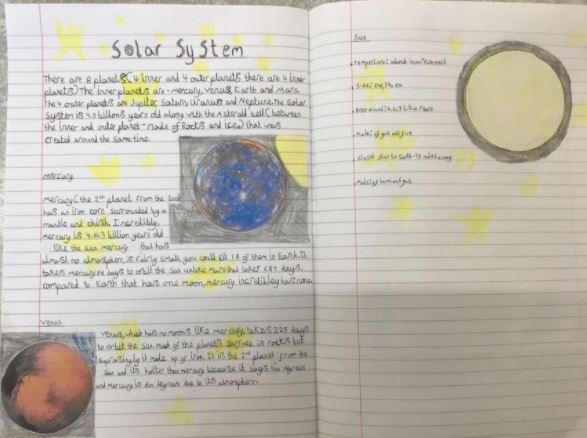 Solar System
There are 8 planets (4 inner and 4 outer planets there are 4 inner
planets) The inner planets are - mercury, Venus, Earth and Mars.
The 4 outer planets are Jupiter, Saturn, Uranus and Neptune. The Solar
System is 4.5 billion years old along with the Asteroid belt (between
the inner and outer planet - made of Rocks and ice) that was
created around the same time.
Mercury
Mercury (the planet from the sun
has an iron core surrounded by a
mantle and Incredibly,
mercury is 4.503 billion years old
like the sun. mercury that has
almost no atmosphere is fairly small, you could fit 18 of them in Earth. It
takes mercury 88 days to orbit the sun unlike Mars that takes 687 days.
compared to Earth that has one moon, mercury has none.
Venus
Venus, which has no moons like mercury, takes 225 days
to orbit the sun. most of the planets surface is rocks but
it made up of iron. It is the 2nd planet from the
sun and its hotter than mercury because it stays degrees
and mercury is degrees due to its atmosphere.
Sun
.Temperature: about
.Size:
.Been around: 4.603 billion years
.made of gas and fire
.closest star to Earth - 93 miles away.
.Made of gas